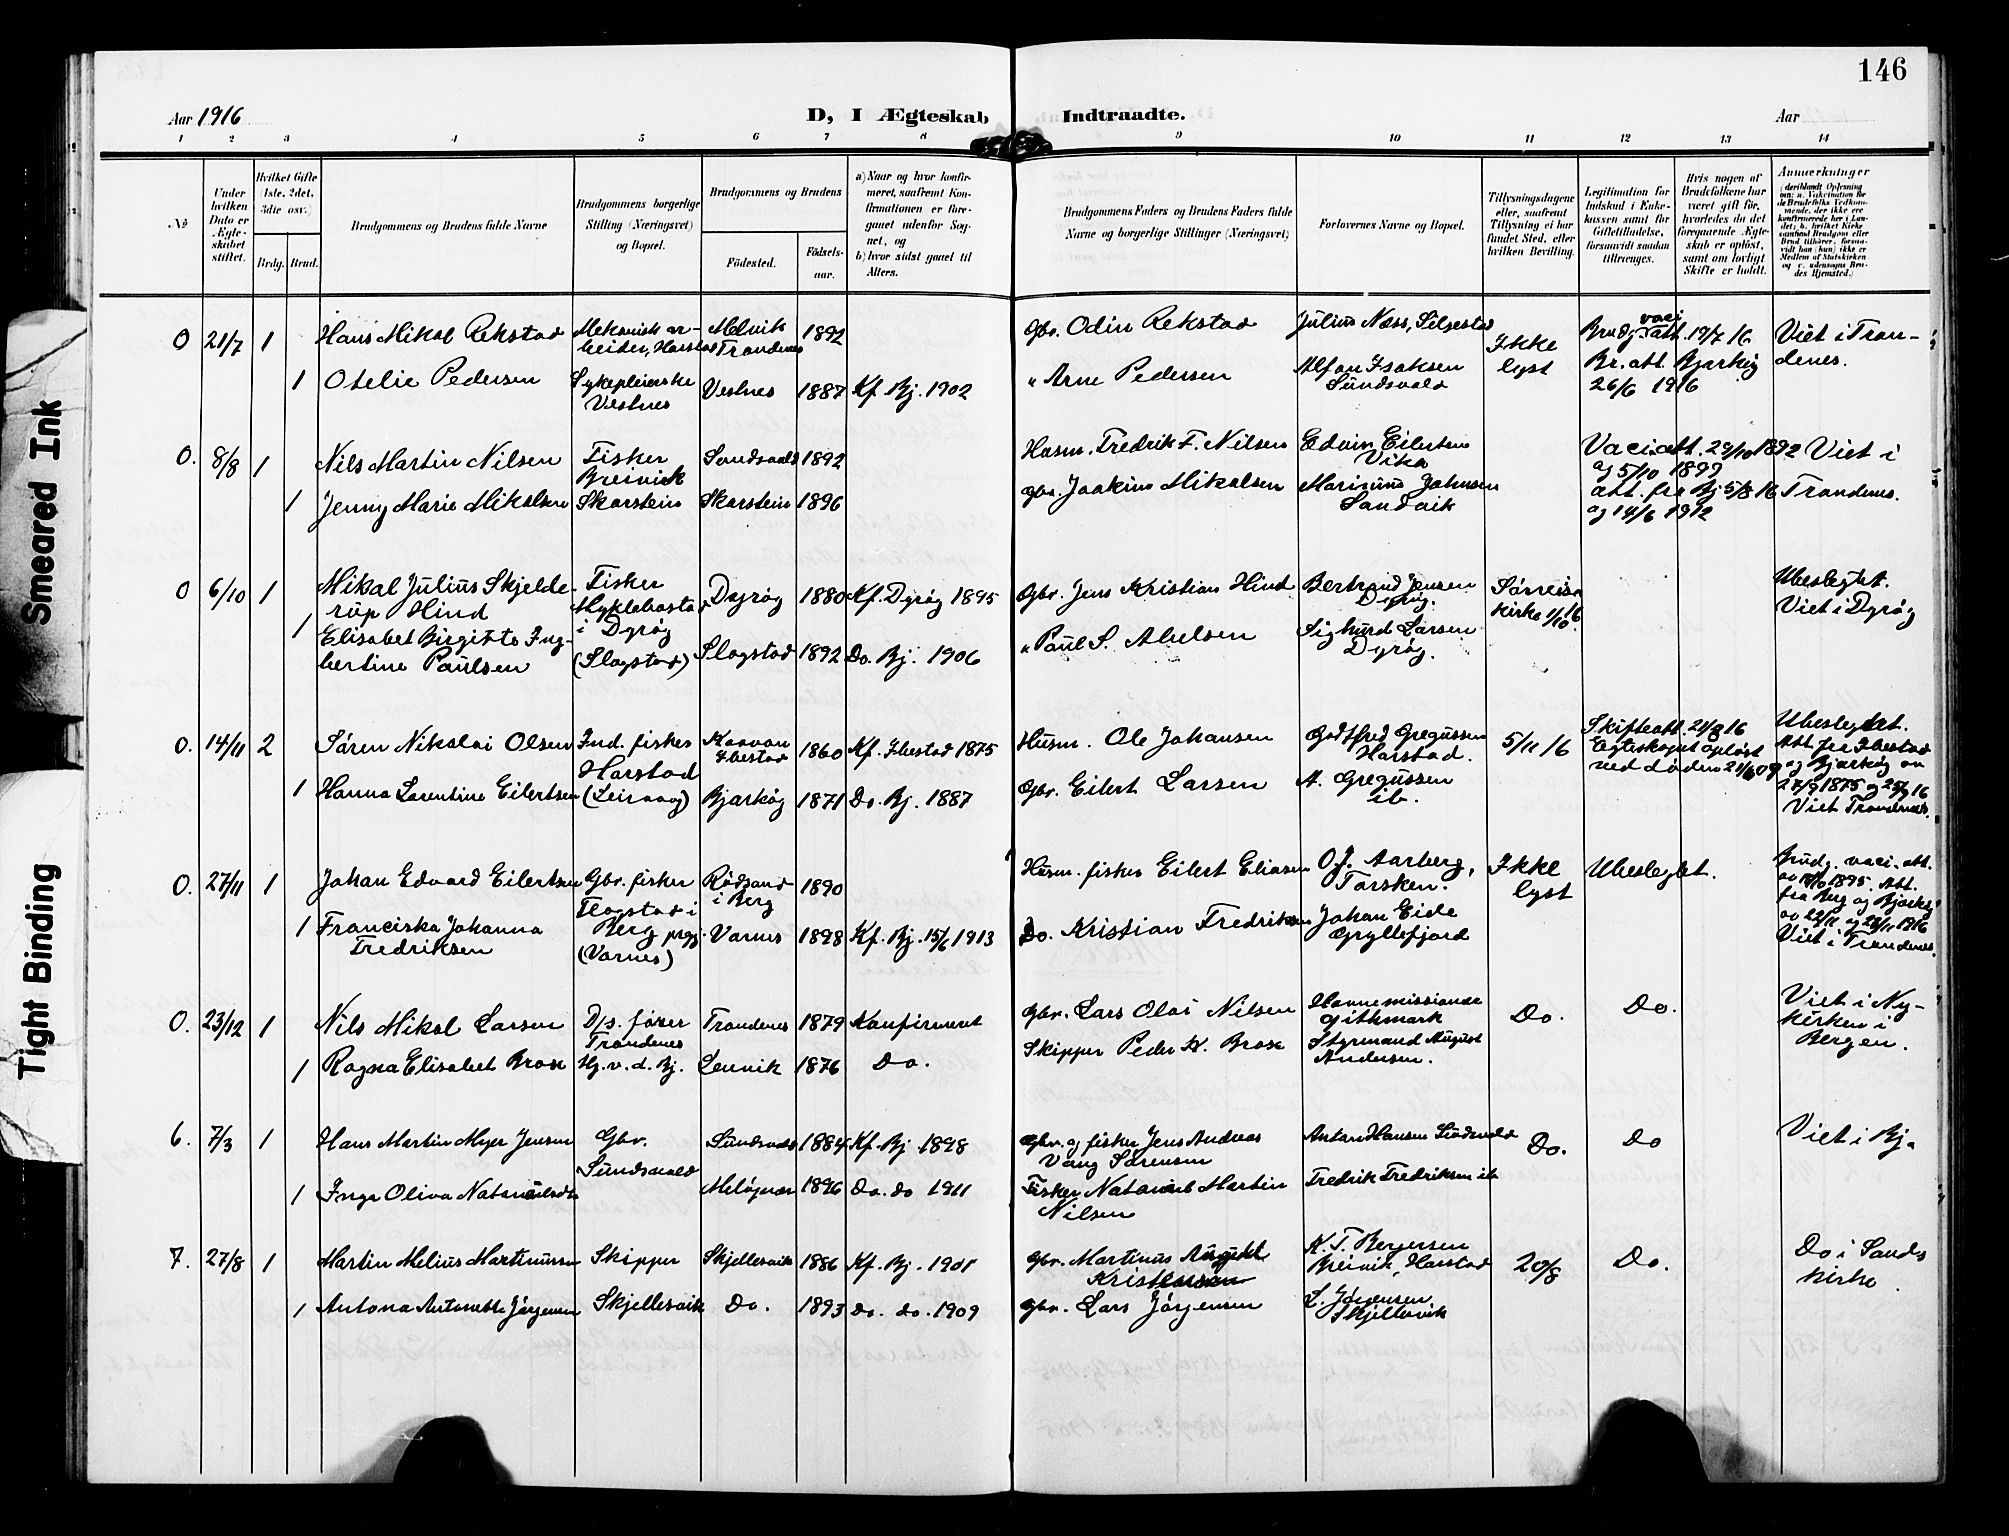 146
Aar 1916
D, I Ægteskab Indtraadte.
Aar
1 2 3 4 5 6 7 8 9 10 11 12 13 14
No
Under hvilken Dato er Ægteskabet stiftet.
Hvilket Gifte (1ste, 2det, 3die osv.)
Brdg. Brud.
Brudgommens og Brudens fulde Navne
Brudgommens borgerlige Stilling (Næringsvei) og Bopæl.
Brudgommens og Brudens
Födested.
Födselsaar.
a) Naar og hvor konfirmeret, saafremt Konfirmationen er foregaaet udenfor Sognet, og
b) hvor sidst gaaet til Alters.
Brudgommens Faders og Brudens Faders fulde Navne og borgerlige Stillinger (Næringsvei)
Forlovernes Navne og Bopæl.
Tillysningsdagene eller, saafremt Tillysning ei har fundet Sted, efter hvilken Bevilling.
Legitimation for Indskud i Enkekassen samt for Giftetilladelse, forsaavidt saadan tiltrænges.
Hvis nogen af Brudefolkene har været gift før, hvorledes da det foregaaende Ægteskab er opløst, samt om lovligt Skifte er holdt.
Anmærkninger
(deriblandt Oplysning om: a. Vaccination for de Brudefolks Vedkommende, der ikke ere konfirmerede her i Landet; b. hvilket Kirkesamfund Brudgom eller Brud tilhører, forsaavidt han (hun) ikke er Medlem af Statskirken og c. udensogns Brudes Hjemsted.)
0 21/7 1 Hans Mikal Rekstad Mekanisk arbeider, Harstad Melvik Trondenes 1892 Gbr. Odin Rekstad Julius Næss, Selgestad Ikke lyst Brudg. vaci att. 19/7 16 Viet i Trondenes.
1 Otelie Pedersen Sykepleierske Vestnes Vestnes 1887 Kf. Bj. 1902 " Arne Pedersen Alfon Isaksen Sundsvald Br. att. Bjarkøy 26/6 1916
0. 8/8 1 Nils Martin Nilsen Fisker Breivik Sandvald 1892 Husm. Fredrik F. Nilsen Edvin Eilertsen Vika Vaci.att. 29/10 1892 og 5/10 1899 Viet i Trondenes.
1 Jenny Marie Mikalsen Skarstein Skarstein 1896 Gbr. Joakim Mikalsen Marinius Johnsen Sandvik att. fra Bj 5/8 16 og 14/6 1912
0 6/10 1 Mikal Julius Skjelderup Hind Fisker Myklebostad i Dyrøy Dyrøy 1880 Kf. Dyrøy 1895 Gbr. Jens Kristian Hind Bertrand Jensen Dyrøy. Sørreisa kirke 1/10 16. Ubeslegtet. Viet i Dyrøy
1 Elisabet Birgitte Ingbertine Paulsen (Slagstad) Slagstad 1892 Do. Bj. 1906 " Paul S. Abelsen Sighurd Larsen Dyrøy.
0. 14/11 2 Søren Nikolai Olsen Ind. fisker Harstad Ibestad 1860 Kf. Ibestad 1875 Husm. Ole Johansen Godtfred Gregussen Harstad. 5/11 16 Skifteatt. 21/8 16 Egteskapet opløst ved døden 21/6 09 Ubeslegtet. Att. fra Ibestad og Bjarkøy av 27/9 1875 og 25/9 16 Viet Trondenes.
1 Hanna Larentine Eilertsen (Leirvaag) Bjarkøy 1871 Do. Bj. 1887 Gbr. Eilert Larsen A. Gregussen ib.
0. 27/11 1 Johan Edvard Eilertsen Gbr. fisker Flagstad i Berg prgj. Rødsand i Berg 1890 Husm. fisker Eilert Eliasen O.J. Aarberg, Torsken. Ikke lyst Ubeslegtet. Brudg. vaci. att. av 1895. Att. fra Berg og Bjarkøy av 22/11 og 1916 Viet i Trondenes.
1 Franciska Johanna Fredriksen (Varnes) Varnes 1898 Kf. Bj. 15/6 1913 Do. Kristian Fredriksen Johan Eide Gryllefjord
0. 23/12 1 Nils Mikal Larsen D/s. fører Trondenes Trondenes 1879 Konfirmert Gbr. Lars Olai Nilsen Havnemissionær Githmark Do. Do. Viet i Nykirken i Bergen.
1 Ragna Elisabet Brox Hj. v. d. Bj. Lenvik 1876 Do. Skipper Peder K. Brox Styrmand August Andersen.
6. 7/3 1 Hans Martin Myer Jensen Gbr. Sundsvald Sundsvald 1884 Kf. Bj. 1898 Gbr. og fisker Jens Andreas Vang Sørensen Antan Hansen Do. Do Viet i Bj.
1 Inga Oliva Natanielsdtr Meløyvær 1896 Do. Do 1911 Fisker Nataniel Martin Nilsen Fredrik Fredriksen ib
7. 27/8 1 Martin Melius Martinussen Skipper Skjellesvik 1886 Kf. Bj. 1901 Gbr. Martinus August Kristensen K. T. Bergersen Breivik, Harstad 20/8 Do. Do i Sands kirke
1 Antona Antonette Jørgensen Skjellesvik Do. 1893 Do. Do. 1909 Gbr. Lars Jørgensen L. Jørgensen Skjellesvik
Smeared Ink
Tight Binding